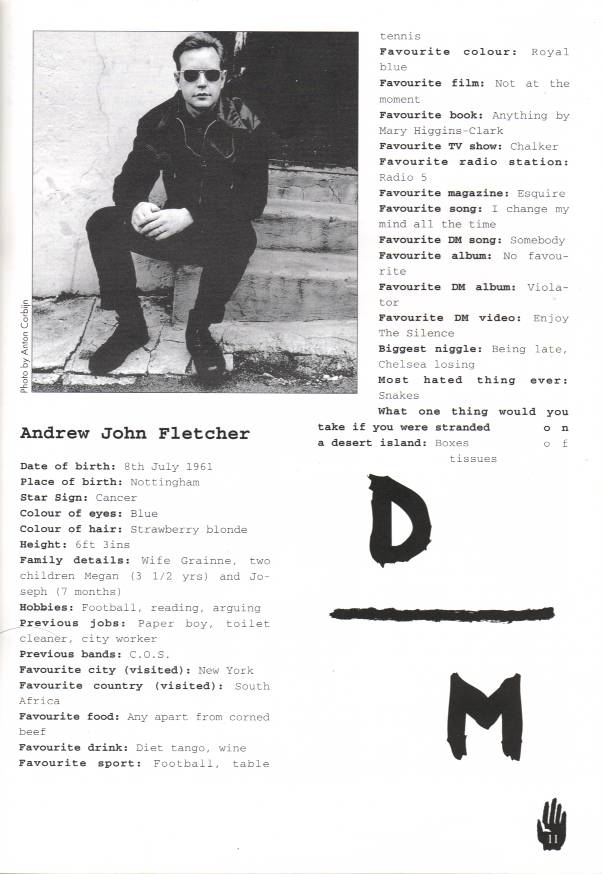 Photo by Anton Corbijn
Andrew John Fletcher
Date of birth: 8th July 1961
Place of birth: Nottingham
Star Sign: Cancer
Colour of eyes: Blue
Colour of hair: Strawberry blonde
Height: 6ft 3ins
Family details: Wife Grainne, two
children Megan (3 1/2 yrs) and Jo-
seph (7 months)
Hobbies: Football, reading, arguing
Previous jobs: Paper boy, toilet
cleaner, city worker
Previous bands: C.O.S.
Favourite city (visited): New York
Favourite country (visited): South
Africa
Favourite food: Any apart from corned
beef
Favourite drink: Diet tango, wine
Favourite sport: Football, table
tennis
Favourite colour: Royal
blue
Favourite film: Not at the
moment
Favourite book: Anything by
Mary Higgins-Clark
Favourite TV show: Chalker
Favourite radio station:
Radio 5
Favourite magazine: Esquire
Favourite song: I change my
mind all the time
Favourite DM song: Somebody
Favourite album: No favou-
rite
Favourite DM album: Viola-
tor
Favourite DM video: Enjoy
The Silence
Biggest niggle: Being late,
Chelsea losing
Most hated thing ever:
Snakes
What one thing would you
take if you were stranded o n
a desert island: Boxes o f
tissues
D
M
11